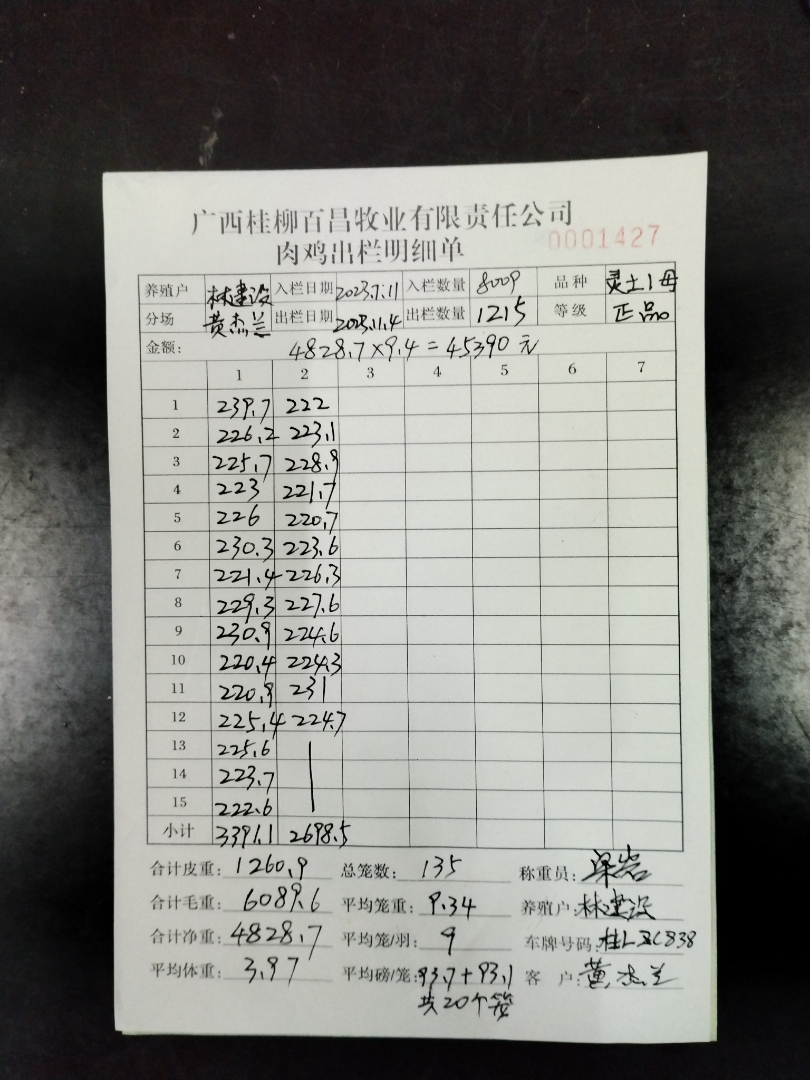 广西桂柳百昌牧业有限责任公司
肉鸡出栏明细单 0001427
养殖户 林建设 入栏日期 2023.7.11 入栏数量 8009 品种 灵土1母
分场 黄杰兰 出栏日期 2023.11.4 出栏数量 1215 等级 正品
金额: 4828.7×9.4=45390元
1 2 3 4 5 6 7
1 239.7 222
2 226.2 223.1
3 225.7 228.9
4 223 221.7
5 226 220.7
6 230.3 223.6
7 221.4 226.3
8 229.3 227.6
9 230.9 224.6
10 220.4 224.3
11 220.9 231
12 225.4 224.7
13 225.6
14 223.7
15 222.6
小计 3391.1 2698.5
合计皮重: 1260.9 总笼数: 135 称重员: 梁岩
合计毛重: 6089.6 平均笼重: 9.34 养殖户: 林建设
合计净重: 4828.7 平均笼/羽: 9 车牌号码: 桂L
平均体重: 3.97 平均磅/笼: 93.7+93.1 客户: 黄杰兰
共20个